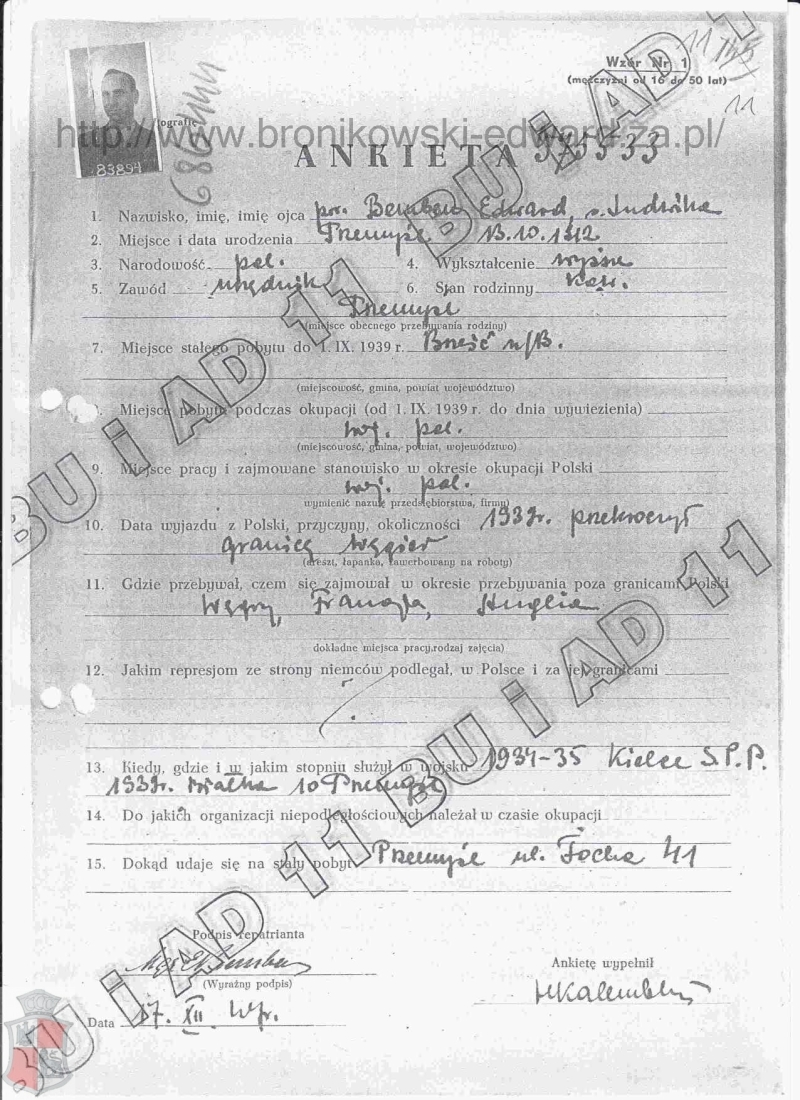 Wzór Nr 1
(mężczyźni od 16 do 50 lat)
11
http://www.bronikowski-edward.za.pl/
83894
ANKIETA
1. Nazwisko, imię, imię ojca por. Bemben Edward s. Ludwika
2. Miejsce i data urodzenia Przemyśl 13.10.1912
3. Narodowość pol. 4. Wykształcenie wyższe
5. Zawód urzędnik 6. Stan rodzinny kaw.
Przemyśl
(miejsce obecnego przebywania rodziny)
7. Miejsce stałego pobytu do 1. IX. 1939 r. Brześć n/B.
(miejscowość, gmina, powiat województwo)
Miejsce pobytu podczas okupacji (od 1. IX. 1939 r. do dnia wywiezienia)
woj. pol.
(miejscowość, gmina, powiat, województwo)
9. Miejsce pracy i zajmowane stanowisko w okresie okupacji Polski
woj. pol.
wymienić nazwę przedsiębiorstwa, firmy)
10. Data wyjazdu z Polski, przyczyny, okoliczności 1939r. przekroczył
granicę Węgier
(areszt, łapanka, zawerbowany na roboty)
11. Gdzie przebywał, czem się zajmował w okresie przebywania poza granicami Polski
Węgry, Francja, Anglia
dokładne miejsca pracy, rodzaj zajęcia)
12. Jakim represjom ze strony niemców podlegał, w Polsce i za jej granicami
13. Kiedy, gdzie i w jakim stopniu służył w wojsku 1934-35 Kielce S.P.P.
1939r. Przemyśl
14. Do jakich organizacji niepodległościowych należał w czasie okupacji
15. Dokąd udaje się na stały pobyt Przemyśl ul. Focha 41
Podpis repatrianta
(Wyraźny podpis)
Ankietę wypełnił
Data 17. XII.
BU i AD 11 BU i AD 11
BU i AD 11 BU i AD 11
BU i AD 11